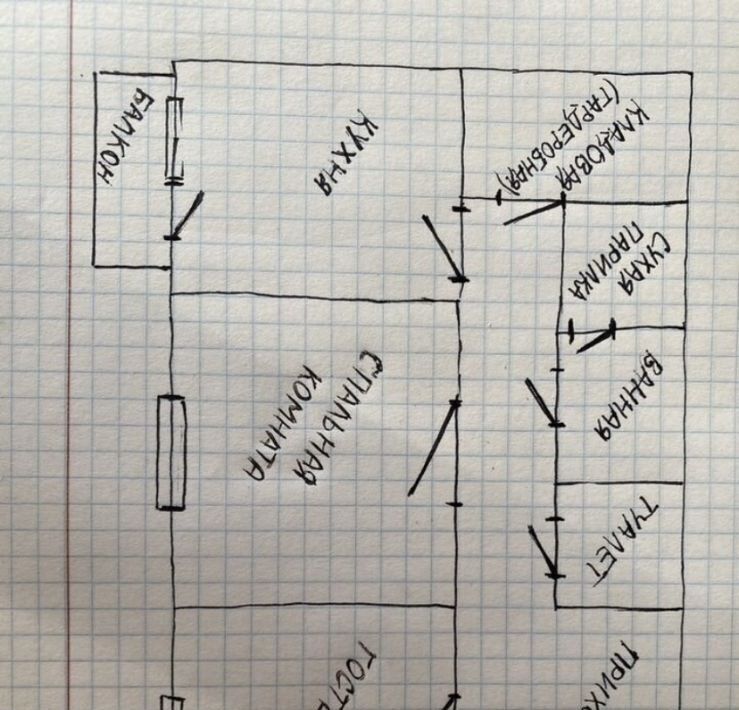 БАЛКОН
КУХНЯ
КЛАДОВАЯ
(ГАРДЕРОБНАЯ)
СУХАЯ
ПАРИЛКА
СПАЛЬНАЯ
КОМНАТА
ВАННАЯ
ТУАЛЕТ
ГОСТ
ПРИХ